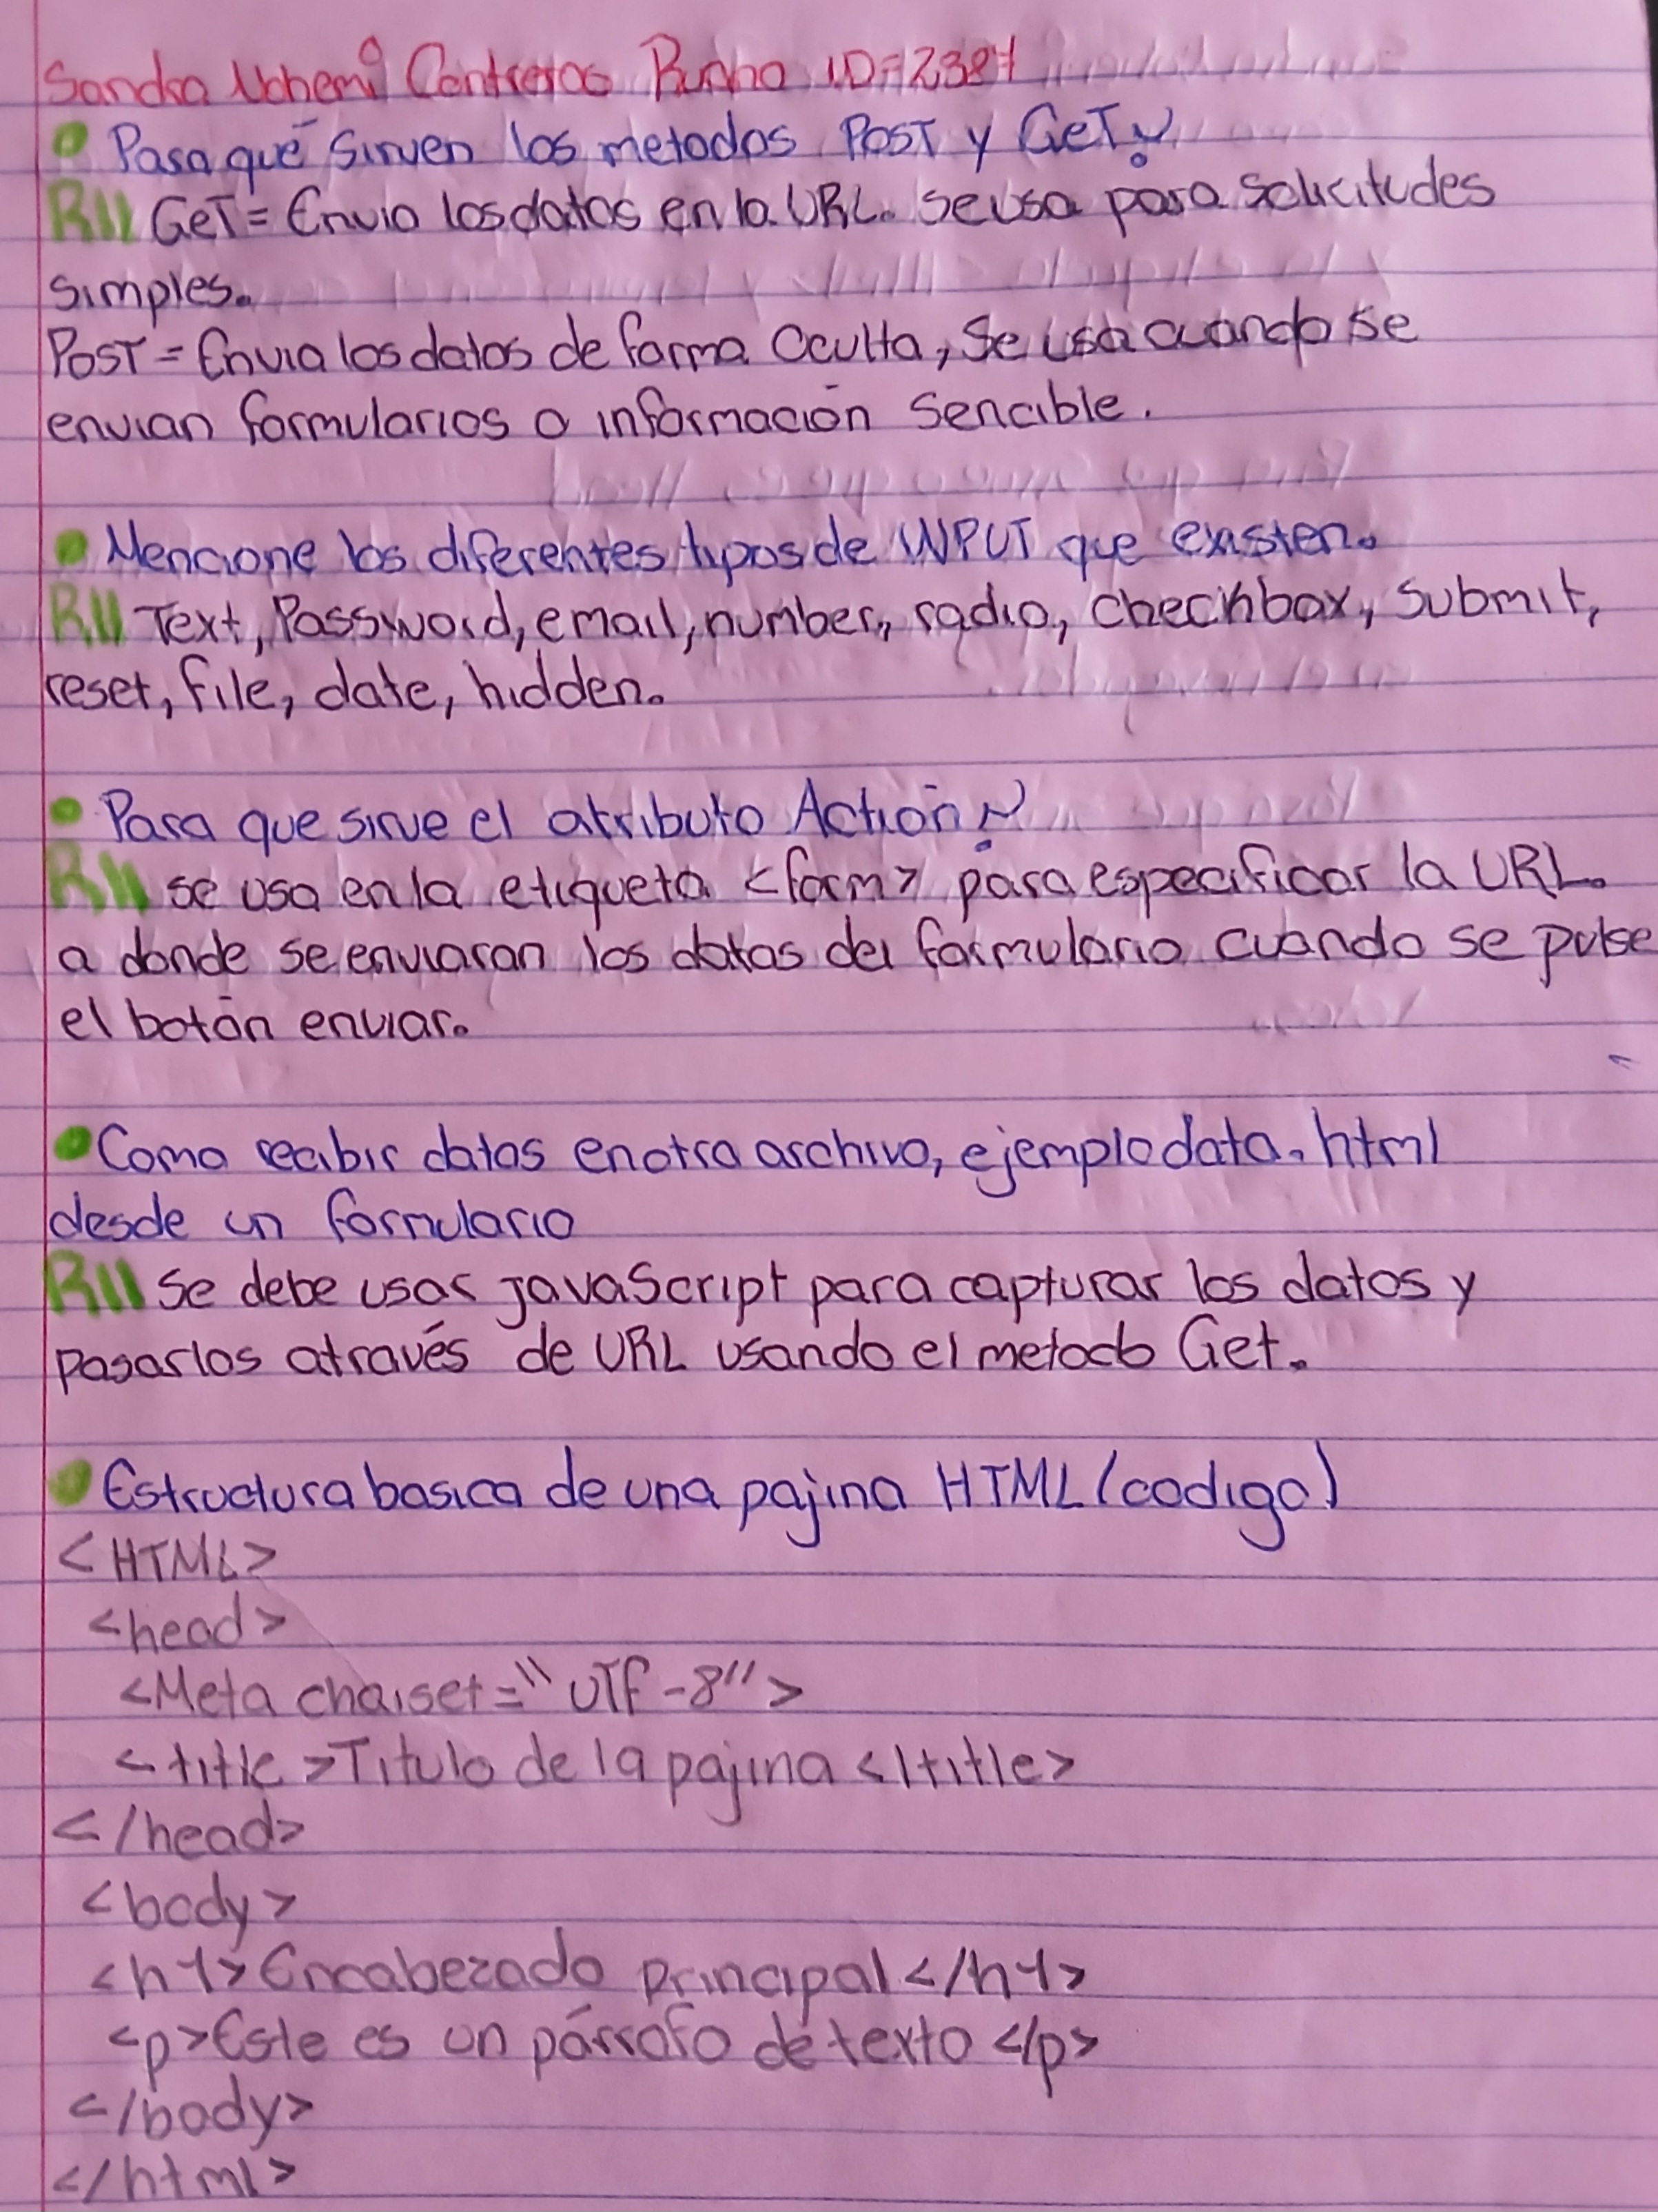 Sandra Nohemi Contreras ID=2387
• Para qué sirven los metodos POST y GeT?
R// GeT = Envia los datos en la URL. se usa para solicitudes
simples.
POST = Envia los datos de forma Oculta, Se usa cuando se
envian formularios o información Sencible.
• Mencione los diferentes typos de INPUT que existen.
R// Text, Password, email, number, radio, checkbox, submit,
reset, file, date, hidden.
• Para que sirve el atributo Actión?
R// se usa en la etiqueta <form> para especificar la URL.
a donde se enviaran los datos del formulario cuando se pulse
el botón enviar.
• Como recibir datos en otro archivo, ejemplo data.html
desde un formulario
R// Se debe usar JavaScript para capturar los datos y
pasarlos através de URL usando el metodo Get.
• Estructura basica de una pajina HTML (codigo)
<HTML>
<head>
<Meta charset="UTF-8">
<title>Titulo de la pajina </title>
</head>
<body>
<h1>Encabezado principal</h1>
<p>Este es un párrafo de texto </p>
</body>
</html>